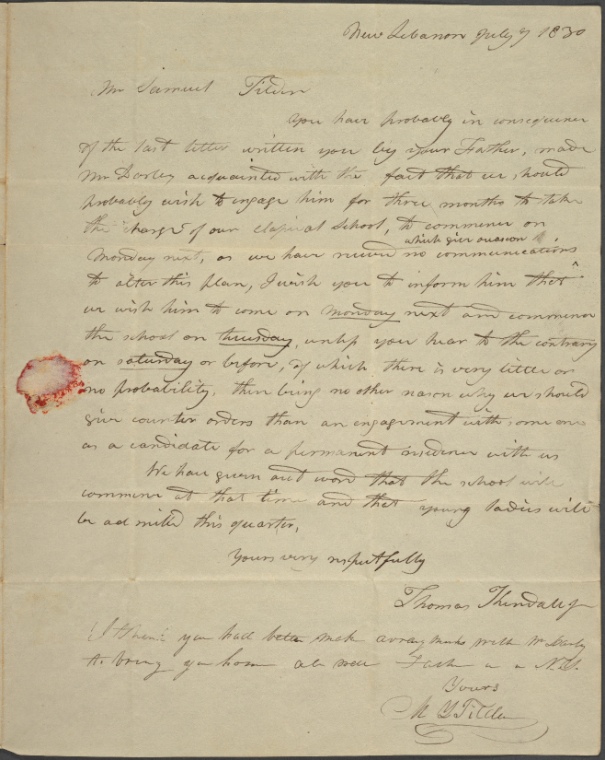 New Lebanon July 7 1830
Mr Samuel Tilden
You have probably in consequence
of the last letter written you by your Father, made
Mr acquainted with the fact that we should
probably wish to engage him for three months to take
the charge of our classical School, to commence on
which give occasion
Monday next, as we have received no communications
to alter this plan, I wish you to inform him that
we wish him to come on Monday next and commence
the school on thursday, unless you hear to the contrary
on saturday or before, of which there is very little or
no probability, there being no other reason why we should
give counter orders than an engagement with some one
as a candidate for a permanent residence with us
We have given out word that the school will
commence at that time and that young ladies will
be admitted this quarter,
Yours very respectfully
Thomas
I think you had better make arrangements with Mr
to bring you home all well Father is in N.Y.
Yours
M Y Tilden